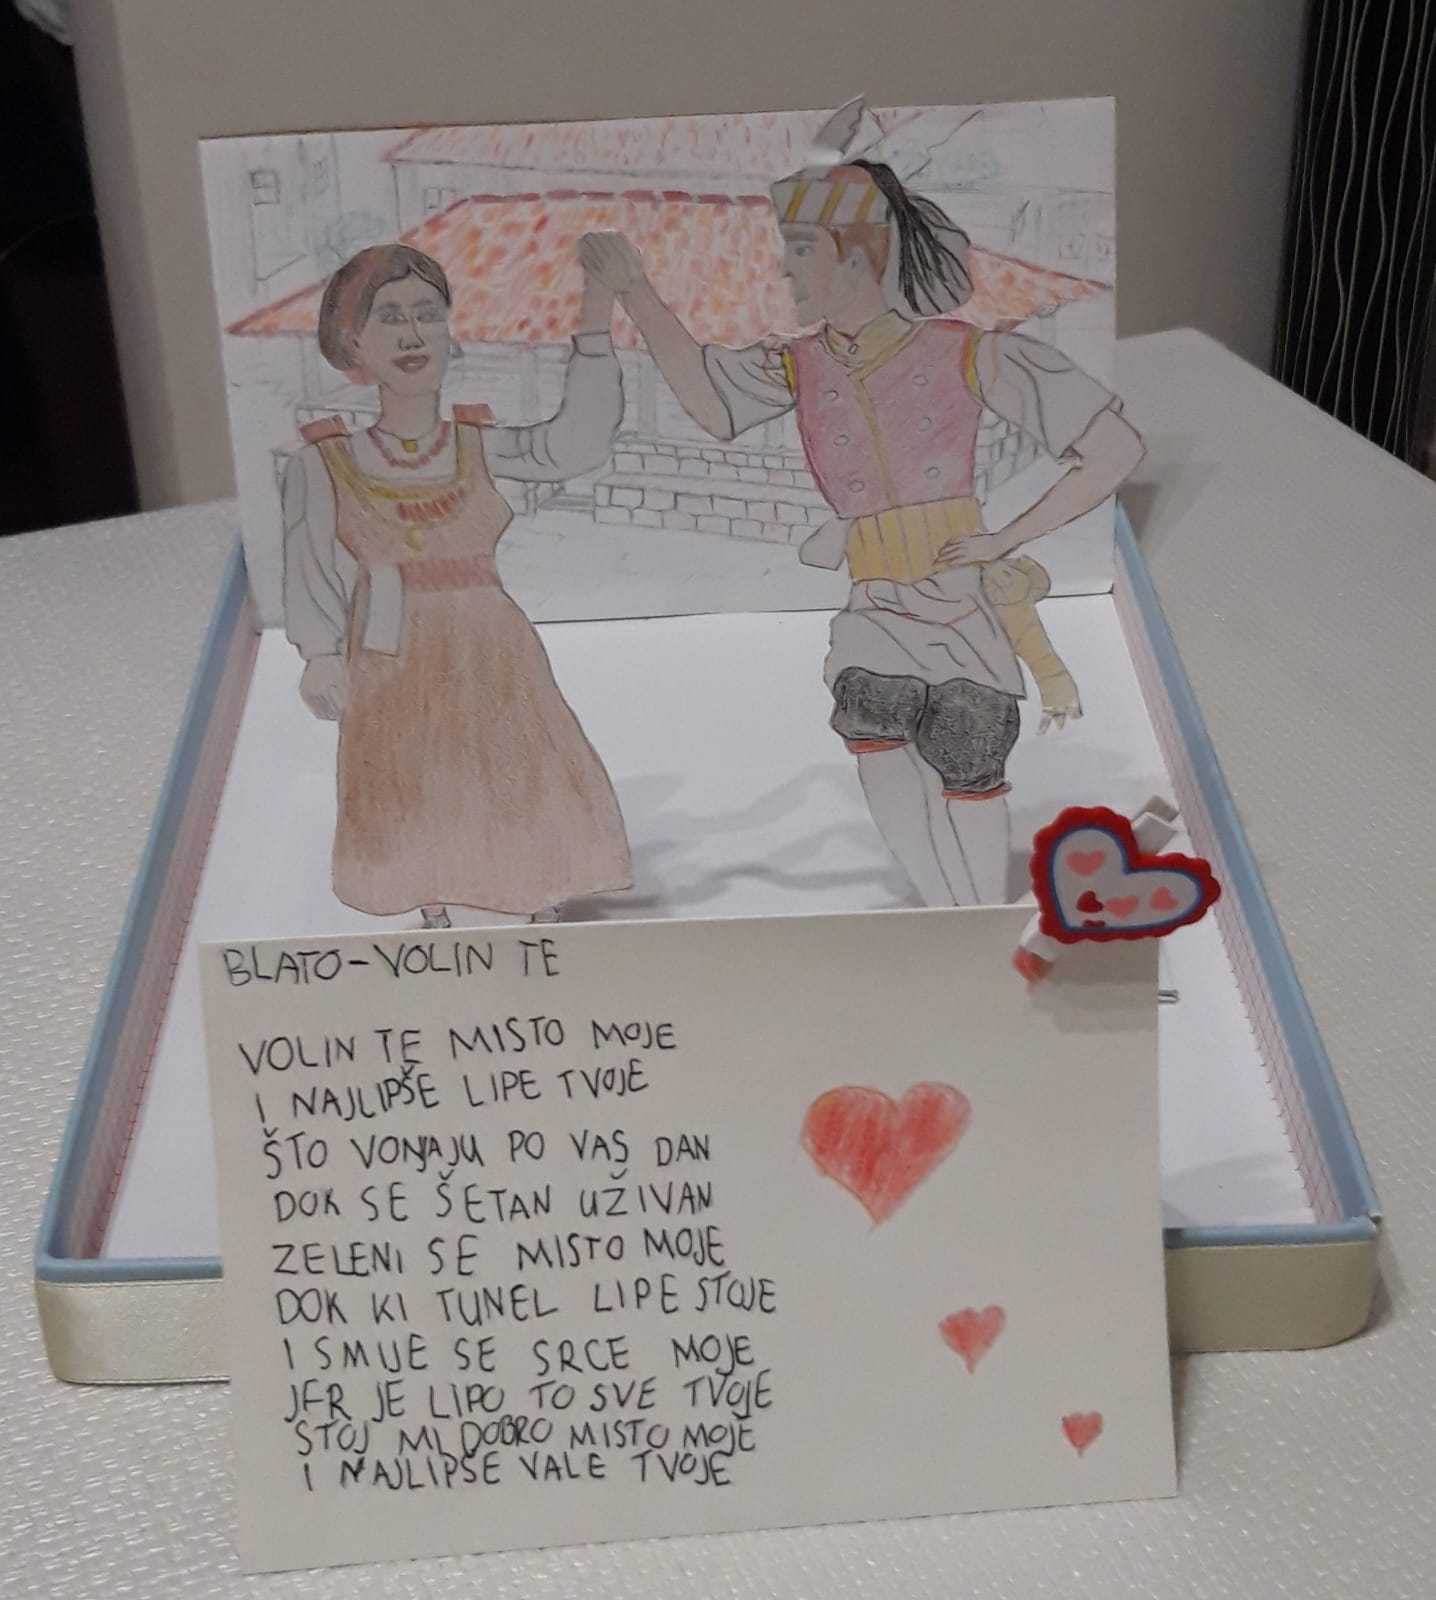 BLATO-VOLIN TE
VOLIN TE MISTO MOJE
I NAJLIPŠE LIPE TVOJE
ŠTO VONJAJU PO VAS DAN
DOK SE ŠETAN UŽIVAN
ZELENI SE MISTO MOJE
DOK KI TUNEL LIPE STOJE
I SMIJE SE SRCE MOJE
JER JE LIPO TO SVE TVOJE
STOJ MI DOBRO MISTO MOJE
I NAJLIPŠE VALE TVOJE